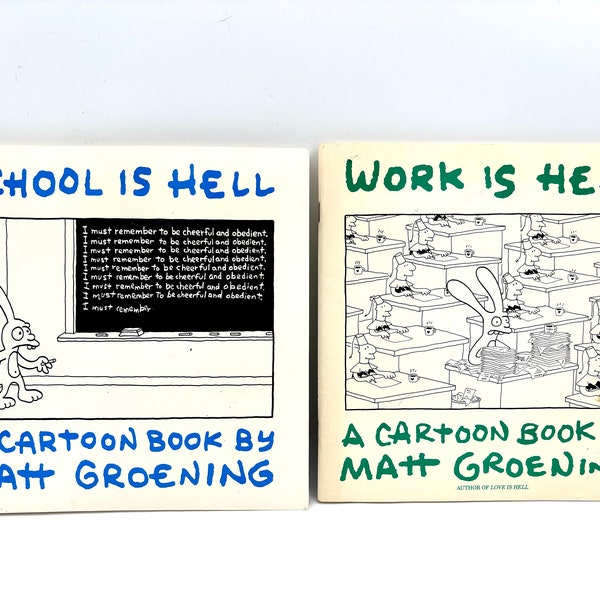 CHOOL IS HELL
I must remember to be cheerful and obedient.
I must remember to be cheerful and obedient.
I must remember to be cheerful and obedient.
I must remember to be cheerful and obedient.
I must remember to be cheerful and obedient.
I must remember to be cheerful and obedient.
I must remember to be cheerful and obedient.
I must remember To be cheerful and obedient.
I must remember
CARTOON BOOK BY
ATT GROENING
WORK IS HE
A CARTOON BOOK
MATT GROENIN
AUTHOR OF LOVE IS HELL